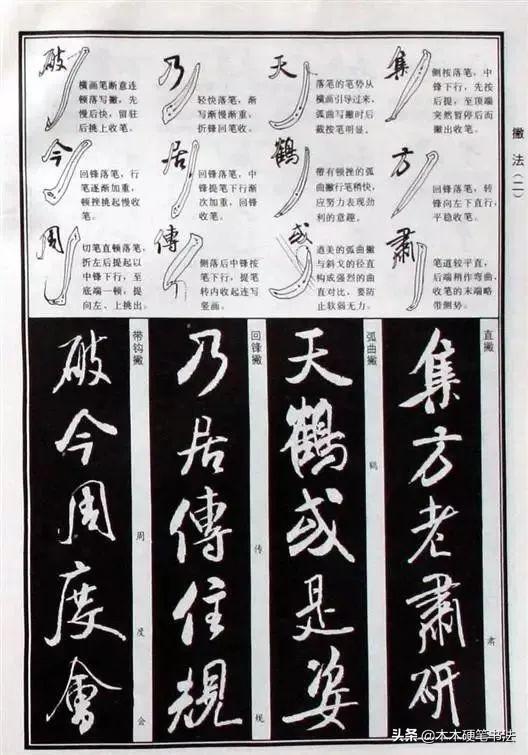 撇法(二)
集
侧按落笔，中
锋下行，先按
后提，至顶端
突然暂停后而
撇出收笔。
方
回锋落笔，转
锋向左下直行，
平稳收笔。
肅
笔道较平直，
后端稍作弯曲，
收笔的末端略
带侧势。
天
落笔的笔势从
横画引导过来，
弧曲写撇时后
截按笔明显。
鶴
带有顿挫的弧
曲撇行笔稍快，
应努力表现劲
利的意趣。
或
遒美的弧曲撇
与斜戈的径直
构成强烈的曲
直对比，要防
止软弱无力。
乃
轻快落笔，渐
写渐慢渐重，
折锋回笔收。
居
回锋落笔，中
锋提笔下行渐
次加重，回锋
收笔。
傳
侧落后中锋按
笔下行，提笔
转内收起连写
竖画。
破
横画笔断意连
顿落写撇，先
慢后快，留驻
后挑上收笔。
今
回锋落笔，行
笔逐渐加重，
顿挫挑起慢收
笔。
周
切笔直顿落笔，
折左后提起以
中锋下行，至
底端一顿，提
向左、上挑出。
直撇
肃
集方老肅研
弧曲撇
鹤
天鶴或是姿
回锋撇
传
规
乃居傳住規
带钩撇
周
度
会
破今周度會
头条 @木木硬笔书法